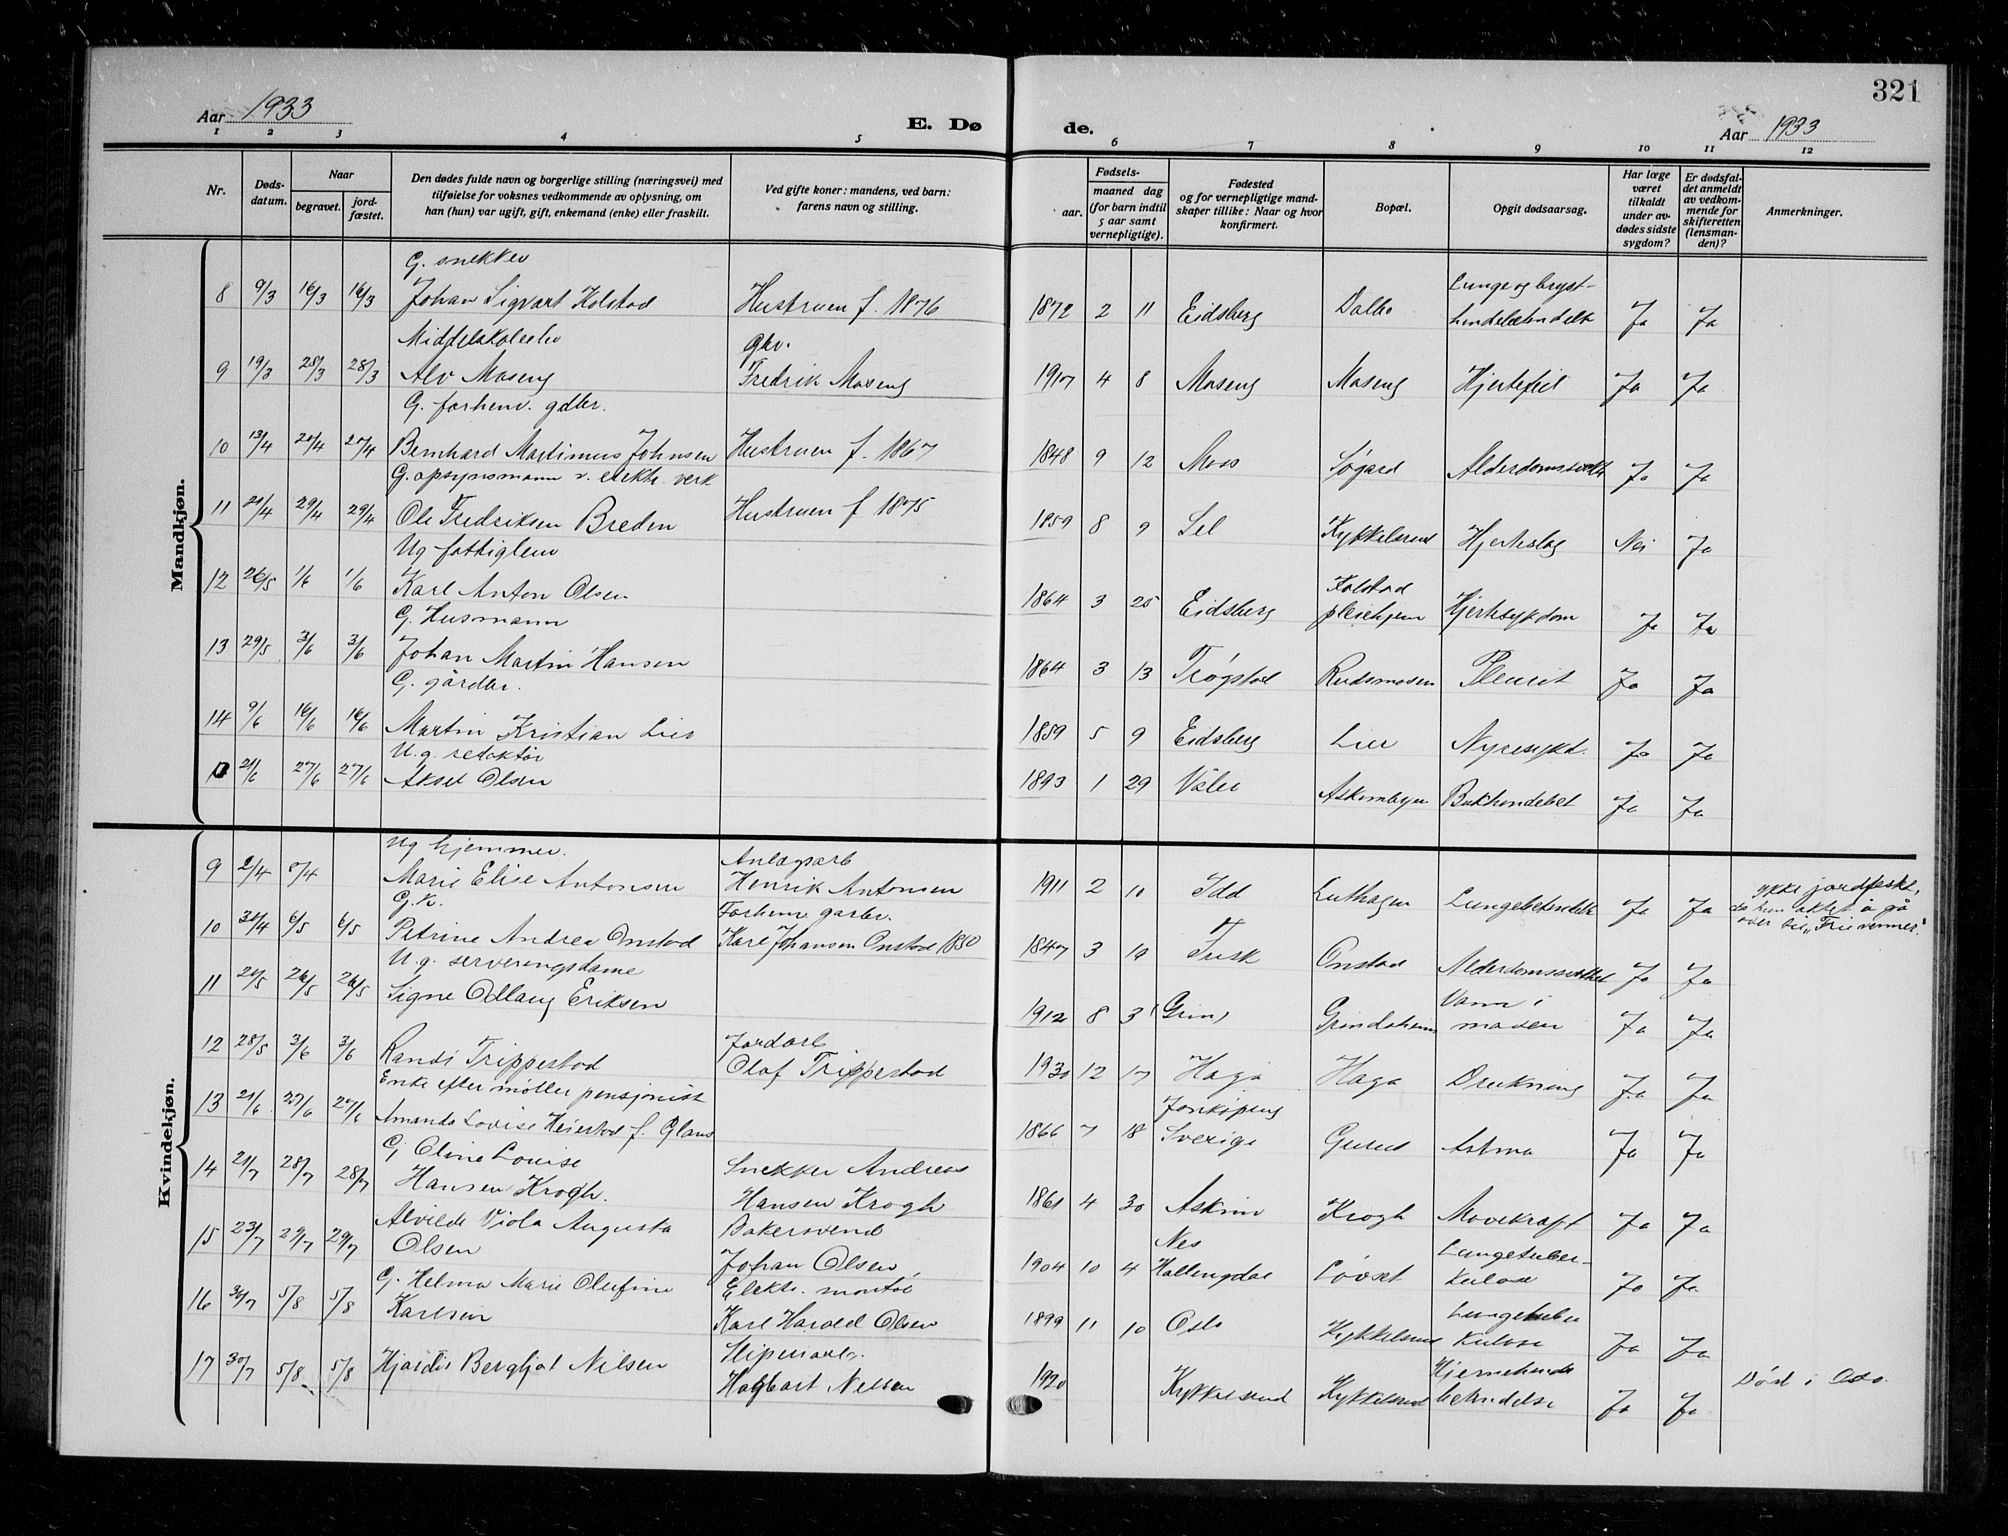 321
Aar 1933
E. Dø
de.
Aar 1933
1 2 3 4 5 6 7 8 9 10 11 12
Nr.
Døds-
datum.
Naar
begravet.
jord-
fæstet.
Den dødes fulde navn og borgerlige stilling (næringsvei) med
tilføielse for voksnes vedkommende av oplysning, om
han (hun) var ugift, gift, enkemand (enke) eller fraskilt.
Ved gifte koner: mandens, ved barn:
farens navn og stilling.
Fødsels-
aar.
maaned dag
(for barn indtil
5 aar samt
vernepligtige).
Fødested
og for vernepligtige mand-
skaper tillike: Naar og hvor
konfirmert.
Bopæl.
Opgit dødsaarsag.
Har læge
været
tilkaldt
under av-
dødes sidste
sygdom?
Er dødsfal-
det anmeldt
av vedkom-
mende for
skifteretten
(lensman-
den)?
Anmerkninger.
Mandkjøn.
G. snekker
8 9/3 16/3 16/3 Johan Sigvart Kolstad Hustruen f. 1876 1872 2 11 Eidsberg Dalbo Lunge og bryst-
hindebetendelse Ja Ja
Middelskoleelev gbr.
9 19/3 28/3 28/3 Alv Moseng Fredrik Moseng 1917 4 8 Moseng Moseng Hjertefeil Ja Ja
G. forhenv. gdbr.
10 13/4 20/4 20/4 Bernhard Martinius Johnsen Hustruen f. 1867 1848 9 12 Moss Søgard Alderdomssvakh Ja Ja
G. opsynsmann v. elektr. verk
11 21/4 29/4 29/4 Ole Fredriksen Breden Hustruen f 1875 1859 8 9 Sel Kykkelsrud Hjerteslag Nei Ja
Ug fattiglem
12 26/5 1/6 1/6 Karl Anton Olsen 1864 3 25 Eidsberg Kolstad
pleiehjem Hjertesykdom Ja Ja
G. Husmann
13 29/5 3/6 3/6 Johan Martin Hansen 1864 3 13 Trøgstad Rudsmosen Pleurit Ja Ja
G. gårdbr.
14 9/6 16/6 16/6 Martin Kristian Lier 1859 5 9 Eidsberg Lier Nyresykd. Ja Ja
U.g. redaktør
21/6 27/6 27/6 Aksel Olsen 1893 1 29 Våler Askimbyen Bukhindebet Ja Ja
Kvindekjøn.
Ug hjemmev. Anlægsarb
9 2/4 8/4 Marie Elise Antonsen Henrik Antonsen 1911 2 10 Idd Luthagen Lungebetendelse Ja Ja Ikke jordfestet,
da hun aktet å gå
over til „Frie venner".
G.k. Forhenv. gårbr.
10 30/4 6/5 6/5 Petrine Andrea Onstad Karl Johansen Onstad 1850 1847 3 19 Trysk Onstad Alderdomssvakhet Ja Ja
U.g. serveringsdame
11 20/5 26/5 26/5 Signe Odlaug Eriksen 1912 8 31 Grini Grindaheim Vann i
maven Ja Ja
Jordarb
12 28/5 3/6 3/6 Randi Trippestad Olaf Trippestad 1930 12 17 Haga Haga Drukning Ja Ja
Enke efter møller pensjonist
13 21/6 27/6 27/6 Amanda Lovise Heiestad f. Glans 1866 7 18 Jonkøping
Sverige Gurud Astma Ja Ja
G Oline Louise
14 21/7 28/7 28/7 Hansen Krogh. Snekker Andreas
Hansen Krogh 1861 4 30 Askim Krogh Mavekræft Ja Ja
15 23/7 29/7 29/7 Alvilde Viola Augusta
Olsen Bakersvend
Johan Olsen 1904 10 4 Nes
Hallingdal Løvset Lungetuber-
kulose Ja Ja
16 30/7 5/8 5/8 G. Helma Marie Olufine
Karlsen Elektr. montør
Karl Harald Olsen 1899 11 10 Oslo Kykkelsrud Lungetuber
kulose Ja Ja
17 30/7 5/8 5/8 Hjørdis Bergljot Nilsen Sliperiarb.
Hagbart Nilsen 1920 Kykkelsrud Kykkelsrud Hjernehinde
betendelse Ja Ja Død i Oslo.